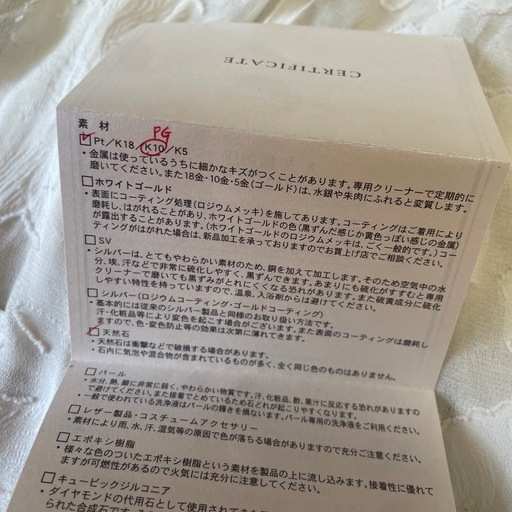 CERTIFICATE
素 材
PG
Pt/K18/K10/K5
・金属は使っているうちに細かなキズがつくことがあります。専用クリーナーで定期的に
磨いてください。また18金・10金・5金(ゴールド)は、水銀や朱肉にふれると変質します。
ホワイトゴールド
・表面にコーティング処理(ロジウムメッキ)を施してあります。コーティングはご着用により
磨耗し、はがれることがあり、ホワイトゴールドの色(黒ずんだ感じか黄色っぽい感じの金属)
が露出することがあります。(ホワイトゴールドのロジウムメッキは、ごく一般的です。)コー
ティングがはがれた場合は、新品加工を承っておりますのでお買上げ店でご相談ください。
SV
・シルバーは、とてもやわらかい素材のため、銅を加えて加工します。そのため空気中の水
分、埃、汗などで非常に硫化しやすく、黒ずんできます。あまりにも硫化がすすむと専用
クリーナーで磨いても黒ずみがとれにくくなる恐れがあります。また硫黄成分に硫化
しやすい特性を持っていますので、温泉、入浴剤からは避けてください。
シルバー(ロジウムコーティング・ゴールドコーティング)
・基本的には従来のシルバー製品と同様のお取り扱い方法です。
汗・化粧品等により変色を起こす場合がございます。また表面のコーティングは磨耗し
ますので、色・変色防止等の効果は次第に薄れてきます。
天然石
・天然石は衝撃などで破損する場合があります。
・石内に気泡や混合物が含まれているものが多く、全く同じ色のものはありません。
パール
・水分、熱、酸に非常に弱く、やわらかい物質です。汗、化粧品、酢、果汁に反応する恐れがありますので
避けてください。また接着でとめているため石どれが起こりやすくなります。
・一般で使われている洗浄液はパールの輝きを損ないます。パール専用の洗浄液をご利用ください。
レザー製品・コスチュームアクセサリー
・素材により雨、水、汗、湿気等の原因で色が落ちる場合がありますので充分ご注意ください。
エポキシ樹脂
・様々な色のついたエポキシ樹脂という素材を製品の上に流し込みます。接着性に優れて
ますが可燃性があるので火気には充分に注意してください。
キュービックジルコニア
・ダイヤモンドの代用石として使用されて
られた合成石です。